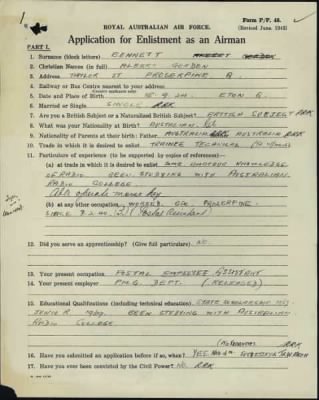 Form P/P. 48.
(Revised June, 1942)
ROYAL AUSTRALIAN AIR FORCE.
Application for Enlistment as an Airman
PART I.
1. Surname (block letters) BENNETT
2. Christian Names (in full) ALBERT GORDEN
3. Address TAYLOR ST PROSERPINE Q.
4. Railway or Bus Centre nearest to your address
5. Date and Place of Birth 15.9.24. ETON Q.
6. Married or Single SINGLE
7. Are you a British Subject or a Naturalised British Subject? BRITISH SUBJECT
8. What was your Nationality at Birth? AUSTRALIAN
9. Nationality of Parents at their Birth: Father AUSTRALIA AUSTRALIA
10. Trade in which it is desired to enlist TRAINEE TECHNICAL
11. Particulars of experience (to be supported by copies of references)—
(a) at trade in which it is desired to enlist SOME KNOWLEDGE
OF RADIO BEEN STUDYING WITH AUSTRALIAN
RADIO COLLEGE.
Able operate morse key
(b) at any other occupation WORKED PROSERPINE
SINCE 7.2.40. (Postal Assistant)
12. Did you serve an apprenticeship? (Give full particulars) NO.
13. Your present occupation POSTAL EMPLOYEE ASSISTANT
14. Your present employer P.M.G. DEPT. (RELEASED)
15. Educational Qualifications (including technical education) STATE SCHOLARSHIP 1937
JUNIOR 1939. BEEN STUDYING WITH AUSTRALIAN
RADIO COLLEGE
16. Have you submitted an application before if so, when? YES.
17. Have you ever been convicted by the Civil Power? No